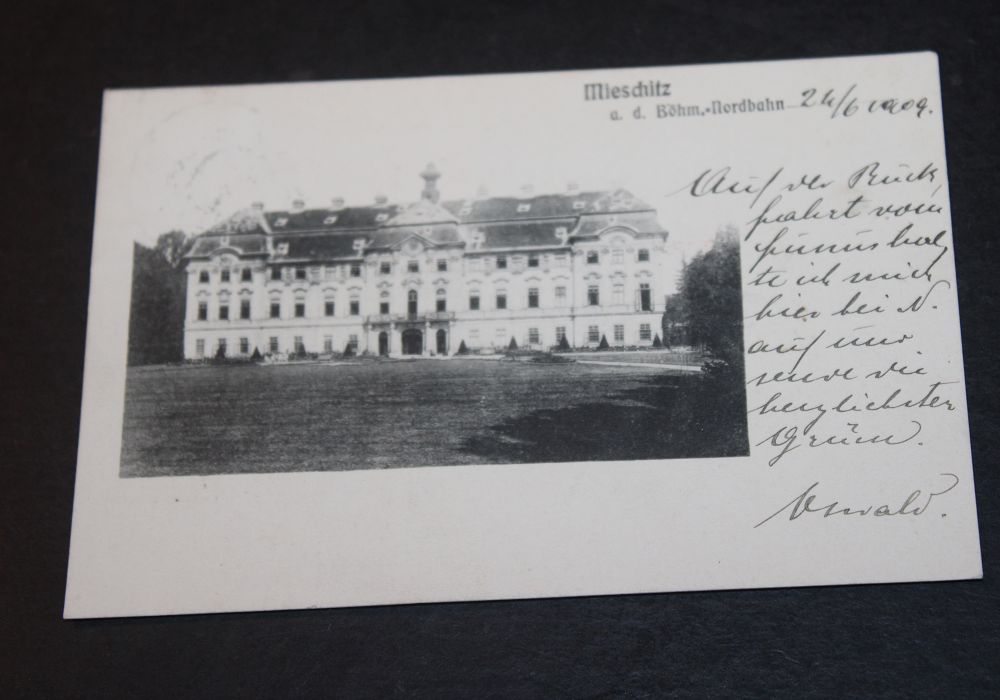 Mieschitz
a. d. Böhm.-Nordbahn 24/6 1909.
Auf der Rück
fahrt vom
Funus hal
te ich mich
hier bei N.
auf und
sende die
herzlichsten
Grüße.
Oswald.